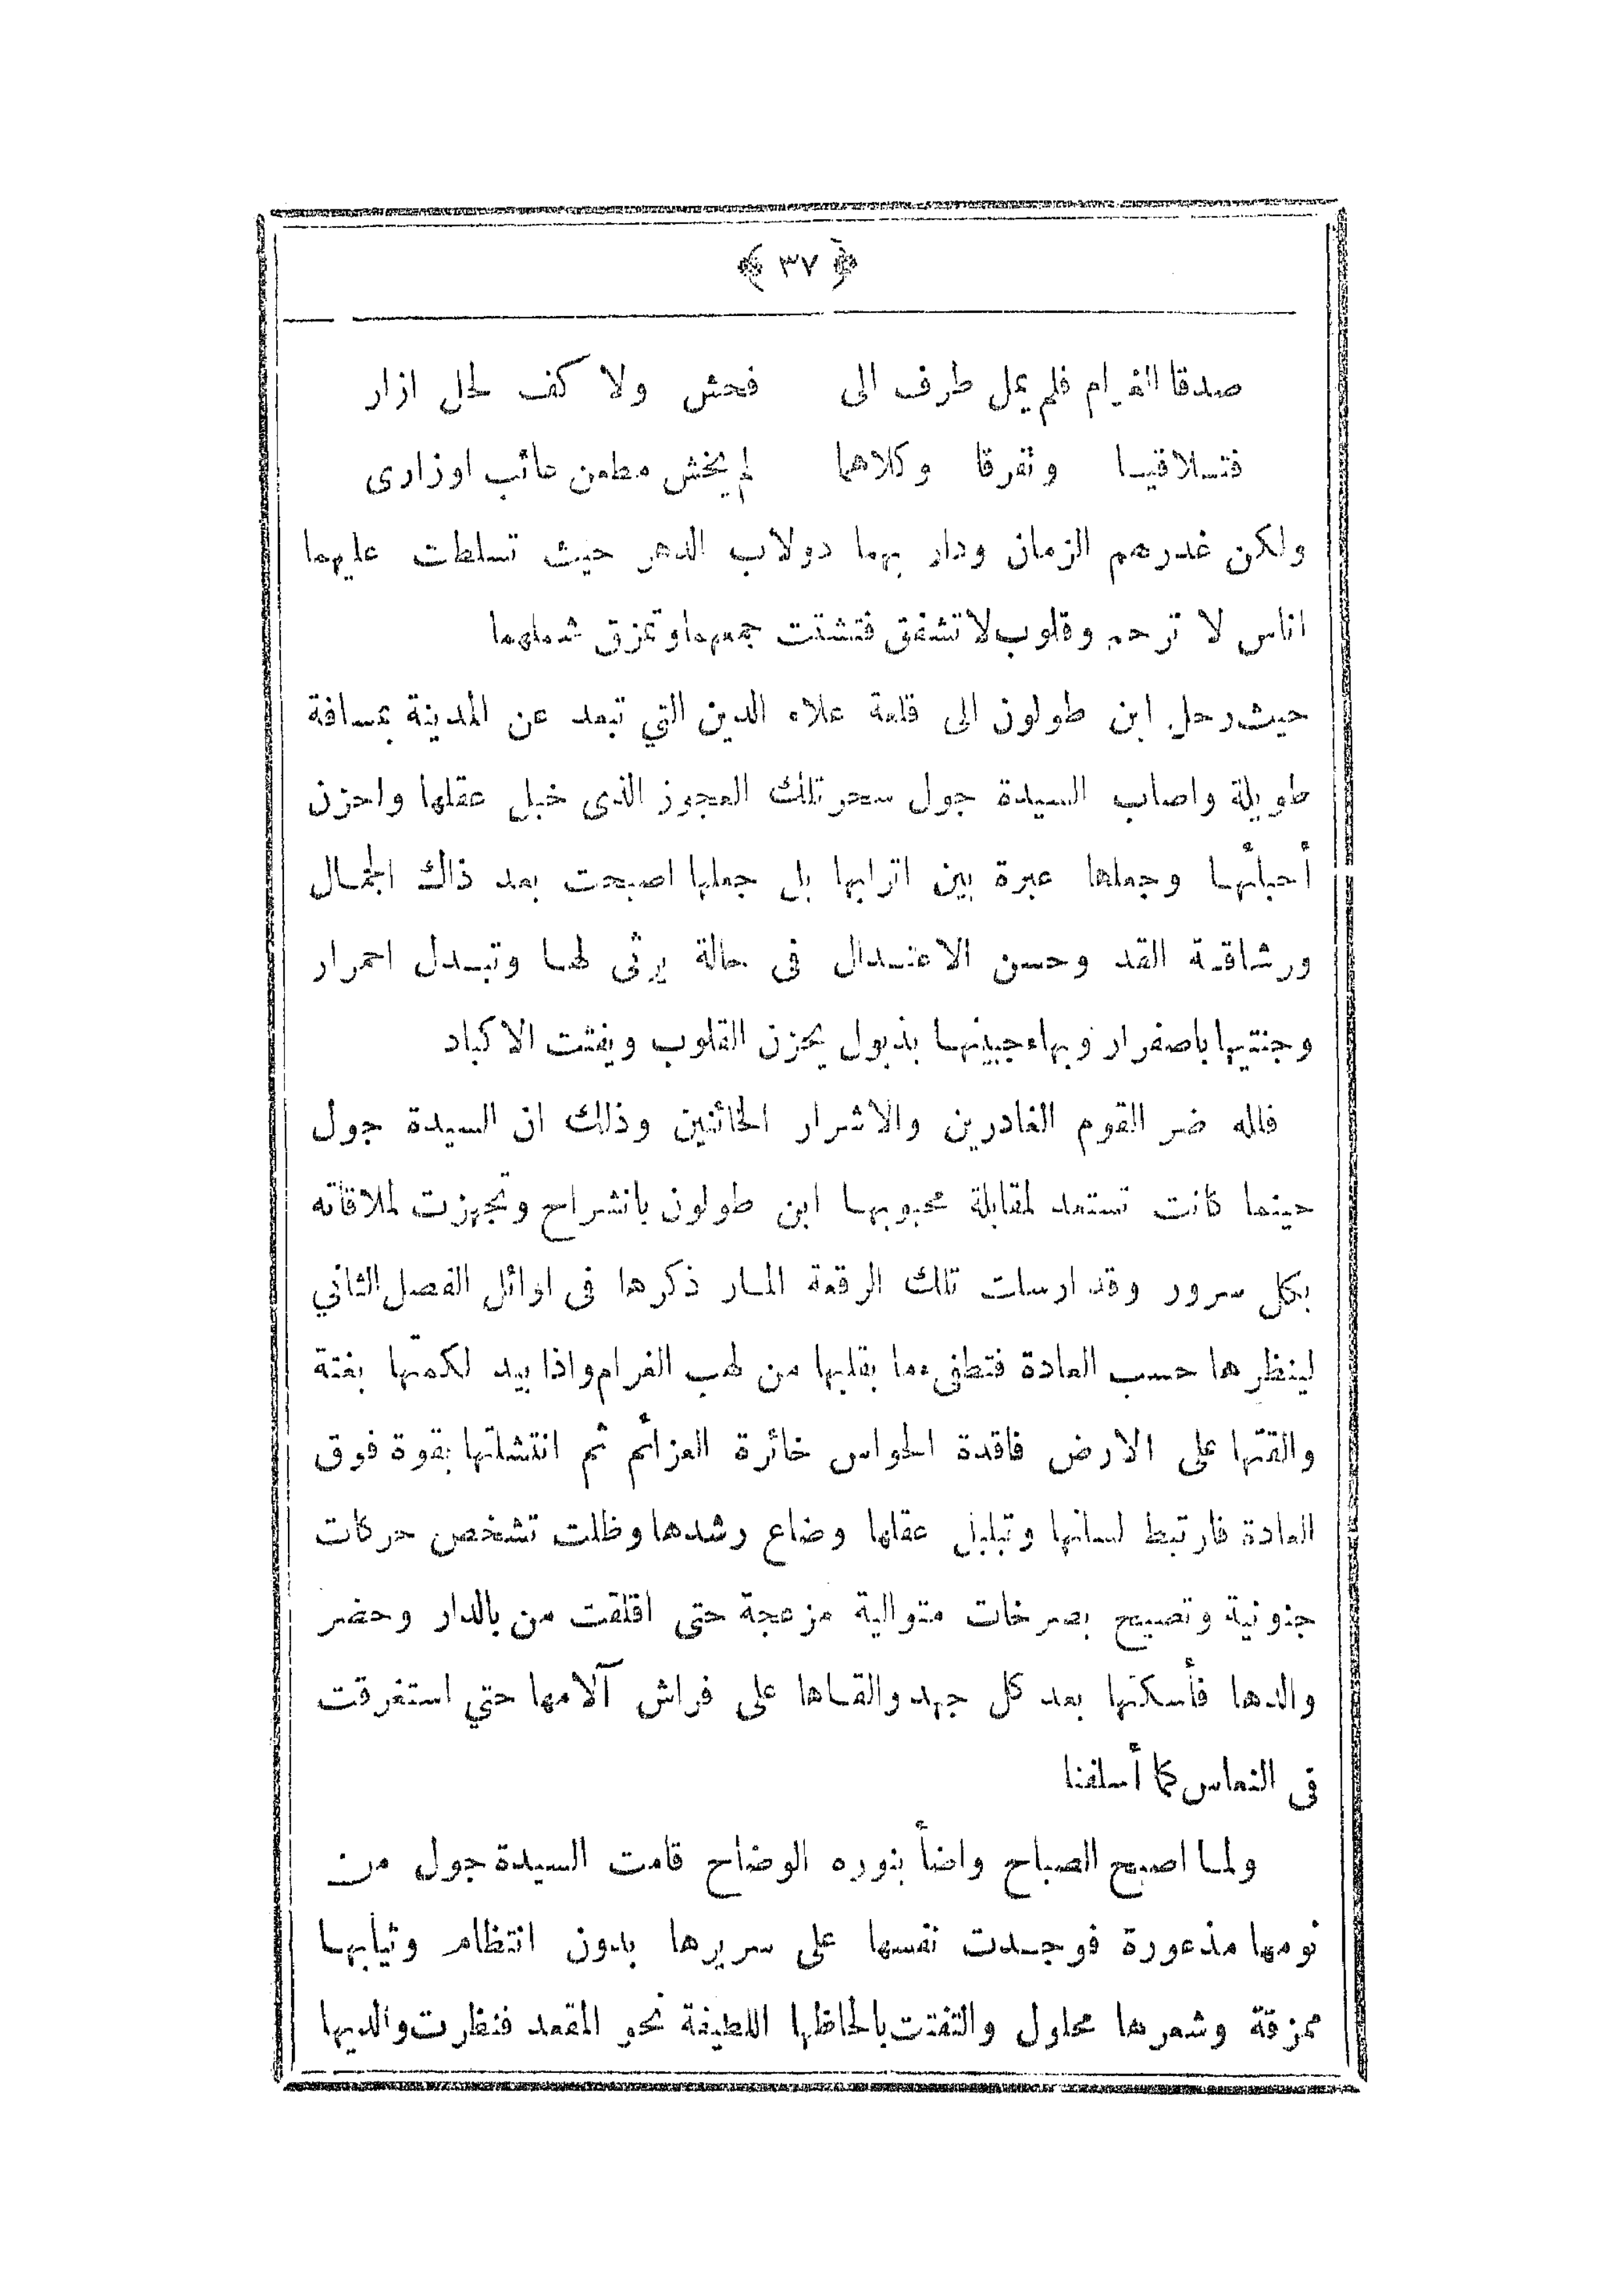 ﴿ ٣٧ ﴾
صدقا الغرام فلم يمل طرف الى فحش ولا كف لحل ازار
فتلاقيا وتفرقا وكلاهما لم يخش مطعن عائب اوزارى
ولكن غدرهم الزمان ودار بهما دولاب الدهر حيث تسلطت عليهما
اناس لا ترحم وقلوب لا تشفق فتشتت جمعهما وتمزق شملهما
حيث رحل ابن طولون الى قلعة علاء الدين التي تبعد عن المدينة بمسافة
طويلة واصاب السيدة جول سحر تلك العجوز الذى خبل عقلها واحزن
أحبائها وجعلها عبرة بين اترابها بل جعلها اصبحت بعد ذاك الجمال
ورشاقة القد وحسن الاعتدال فى حالة يرثى لها وتبدل احمرار
وجنتيها باصفرار وبهاء جبينها بذبول يحزن القلوب ويفتت الاكباد
فالله ضر القوم الغادرين والاشرار الخائنين وذلك ان السيدة جول
حينما كانت تستعد لمقابلة محبوبها ابن طولون بانشراح وتجهزت لملاقاته
بكل سرور وقد ارسلت تلك الرقعة المار ذكرها فى اوائل الفصل الثاني
لينظرها حسب العادة فتطفىء ما بقلبها من لهب الغرام واذا بيد لكمتها بغتة
والقتها على الارض فاقدة الحواس خائرة العزائم ثم انتشلتها بقوة فوق
العادة فارتبط لسانها وتبلبل عقلها وضاع رشدها وظلت تشخص حركات
جنونية وتصيح بصرخات متوالية مزعجة حتى اقلقت من بالدار وحضر
والدها فأسكتها بعد كل جهد والقاها على فراش آلامها حتي استغرقت
فى النعاس كما أسلفنا
ولما اصبح الصباح واضأ بنوره الوضاح قامت السيدة جول من
نومها مذعورة فوجدت نفسها على سريرها بدون انتظام وثيابها
ممزقة وشعرها محلول والتفتت بالحاظها اللطيفة نحو المقعد فنظرت والديها